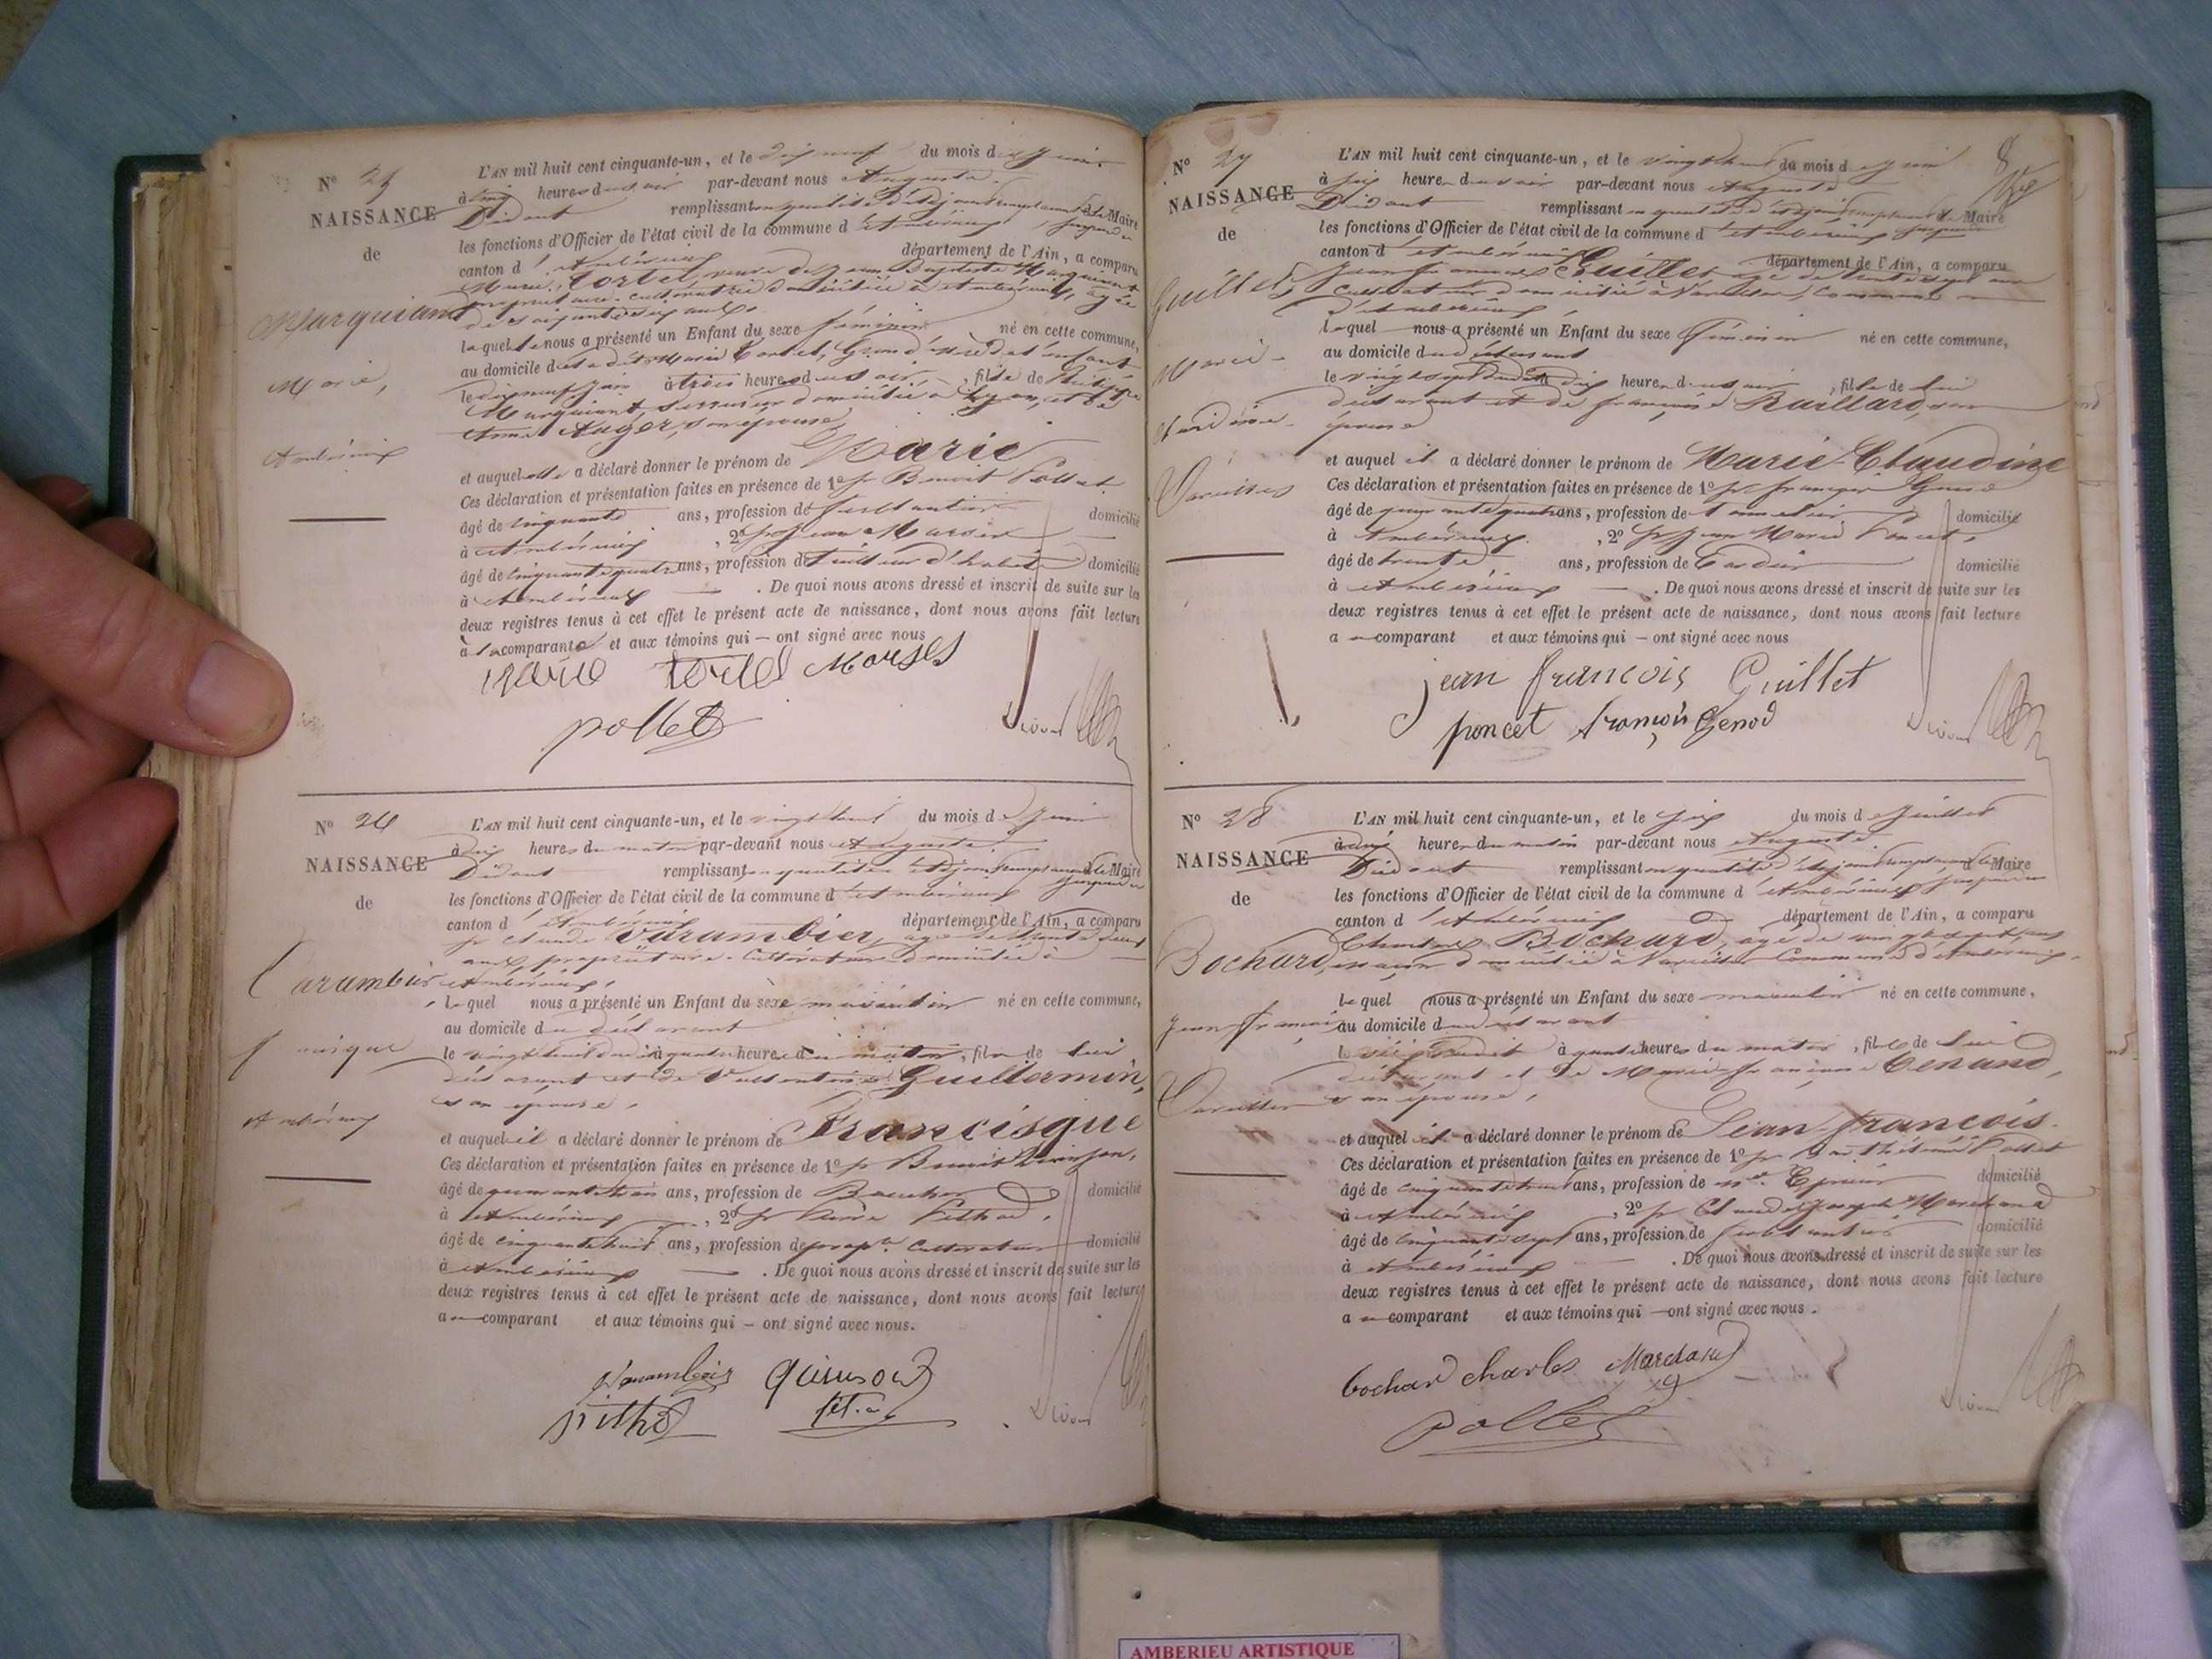 Nº 25
NAISSANCE
de
Marquiant
Marie,
Ambérieux
L'AN mil huit cent cinquante-un, et le dix neuf du mois de Juin
à cinq heures du soir par-devant nous Auguste
Didout remplissant en qualité d'adjoint remplaçant le Maire
les fonctions d'Officier de l'état civil de la commune d'Ambérieux
canton d'Ambérieux département de l'Ain, a comparu
Marie Tortel, veuve de Jean Baptiste Marquiant
propriétaire cultivatrice domiciliée à Ambérieux, âgée
de soixante ans.
laquelle nous a présenté un Enfant du sexe féminin né en cette commune,
au domicile de la dite Marie Tortel, Grand'mère de l'enfant
le dix neuf Juin à trois heures du soir, fille de
Marquiant, serrurier domicilié à Lyon, et de
Anne Auger, son épouse,
et auquel elle a déclaré donner le prénom de Marie
Ces déclaration et présentation faites en présence de 1º sr Benoit Pollet
âgé de cinquante ans, profession de ferblantier domicilié
à Ambérieux, 2º sr Jean
âgé de cinquante quatre ans, profession de tailleur d'habits domicilié
à Ambérieux. De quoi nous avons dressé et inscrit de suite sur les
deux registres tenus à cet effet le présent acte de naissance, dont nous avons fait lecture
à la comparante et aux témoins qui ont signé avec nous
Marie Tortel
pollet
Nº 26
NAISSANCE
de
Varambier
Francisque
Ambérieux
L'AN mil huit cent cinquante-un, et le vingt huit du mois de Juin
à dix heures du matin par-devant nous Auguste
Didout remplissant en qualité d'adjoint remplaçant le Maire
les fonctions d'Officier de l'état civil de la commune d'Ambérieux
canton d'Ambérieux département de l'Ain, a comparu
sr Claude Varambier, âgé de trente
ans, propriétaire cultivateur domicilié à
Ambérieux,
lequel nous a présenté un Enfant du sexe masculin né en cette commune,
au domicile du déclarant
le vingt huit à quatre heures du matin, fils de lui
déclarant et de Guillermin,
son épouse,
et auquel il a déclaré donner le prénom de Francisque
Ces déclaration et présentation faites en présence de 1º sr Benoit
âgé de quarante trois ans, profession de Boucher domicilié
à Ambérieux, 2º sr Pierre
âgé de cinquante huit ans, profession de propre. Cultivateur domicilié
à Ambérieux. De quoi nous avons dressé et inscrit de suite sur les
deux registres tenus à cet effet le présent acte de naissance, dont nous avons fait lecture
au comparant et aux témoins qui ont signé avec nous.
Varambier
Nº 27
NAISSANCE
de
Guillet,
Marie
Claudine
Vareilles
8
L'AN mil huit cent cinquante-un, et le vingt huit du mois de Juin
à six heures du soir par-devant nous Auguste
Didout remplissant en qualité d'adjoint remplaçant le Maire
les fonctions d'Officier de l'état civil de la commune d'Ambérieux
canton d'Ambérieux département de l'Ain, a comparu
Jean françois Guillet, âgé de
Cultivateur domicilié à Vareilles, Commune
d'Ambérieux,
lequel nous a présenté un Enfant du sexe féminin né en cette commune,
au domicile du déclarant
le vingt sept à dix heures du soir, fille de lui
déclarant et de françoise Raillard, son
épouse
et auquel il a déclaré donner le prénom de Marie Claudine
Ces déclaration et présentation faites en présence de 1º sr françois Genod
âgé de quarante quatre ans, profession de Tonnelier domicilié
à Ambérieux. , 2º sr Jean Marie Poncet,
âgé de trente ans, profession de domicilié
à Ambérieux. De quoi nous avons dressé et inscrit de suite sur les
deux registres tenus à cet effet le présent acte de naissance, dont nous avons fait lecture
au comparant et aux témoins qui ont signé avec nous
jean francois Guillet
poncet françois Genod
Nº 28
NAISSANCE
de
Bochard,
Jean françois
Vareilles
L'AN mil huit cent cinquante-un, et le six du mois de Juillet
à dix heures du matin par-devant nous Auguste
Didout remplissant en qualité d'adjoint remplaçant le Maire
les fonctions d'Officier de l'état civil de la commune d'Ambérieux
canton d'Ambérieux département de l'Ain, a comparu
Charles Bochard, âgé de ans
maçon domicilié à Vareilles Commune d'Ambérieux
lequel nous a présenté un Enfant du sexe masculin né en cette commune,
au domicile du déclarant
le à quatre heures du matin, fils de lui
déclarant et de Marie françoise Tenand,
son épouse,
et auquel il a déclaré donner le prénom de Jean françois
Ces déclaration et présentation faites en présence de 1º sr Barthélemi Pollet
âgé de cinquante ans, profession de md. Epicier domicilié
à Ambérieux, 2º sr Claude Joseph Marchand
âgé de cinquante sept ans, profession de ferblantier domicilié
à Ambérieux. De quoi nous avons dressé et inscrit de suite sur les
deux registres tenus à cet effet le présent acte de naissance, dont nous avons fait lecture
au comparant et aux témoins qui ont signé avec nous.
bochard charles Marchand
pollet
AMBERIEU ARTISTIQUE